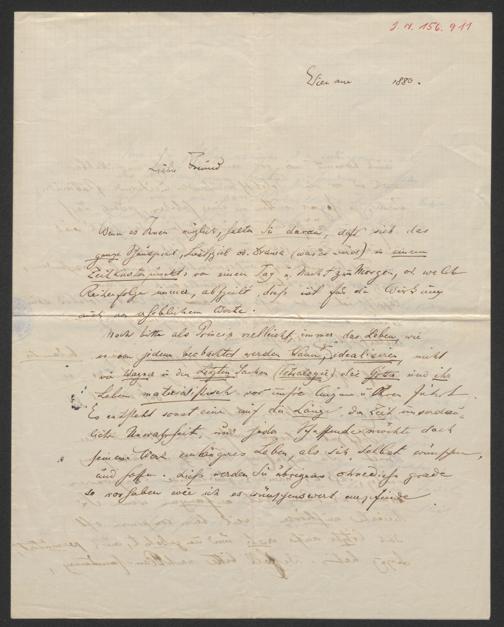 J. N. 156.911
Wien am 1880.
Lieber Freund
Wenn es Ihnen möglich, halten Sie daran, daß sich das
ganze Schauspiel, Lustspiel od. Drama (was es wird) in einem
von einem Tag u. Nacht zum Morgen, od welche
Reihenfolge immer, abspielt, dieß ist für die Wirkung
auch von Werte.
Noch bitte als Princip vielleicht, immer das Leben, wie
es von jedem beobachtet werden kann, idealisieren, nicht
wie Wagner in den letzten Sachen (Tetralogie) die Götter und ihr
Leben materialistisch vor unsre Augen u Ohren führt.
Es entsteht sonst eine auf die Länge der Zeit
Unwahrheit, und jeder Schaffende möchte doch
seinem Werk ein längeres Leben, als sich selbst wünschen,
und hoffen. dieß werden Sie übrigens ohnedieß grade
so vorhaben wie ich es wünschenswert empfinde